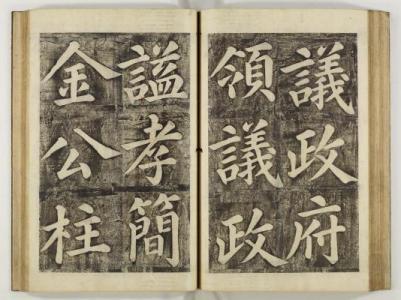 議政府
領議政
諡孝簡
金公柱